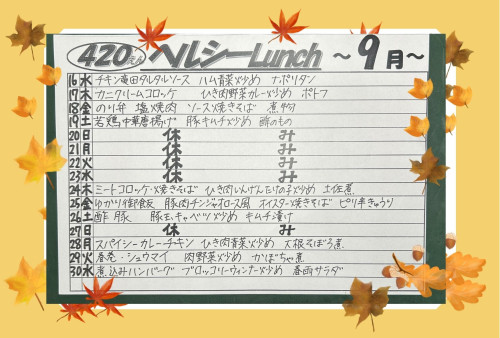 420えん ヘルシーLunch ～9月～
16 水 チキン竜田タルタルソース ハム青菜炒め ナポリタン
17 木 カニクリームコロッケ ひき肉野菜カレー炒め ポトフ
18 金 のり弁 塩焼肉 ソース焼きそば 煮物
19 土 若鶏中華唐揚げ 豚キムチ炒め 酢のもの
20 日 休み
21 月 休み
22 火 休み
23 水 休み
24 木 ミートコロッケ・焼きそば ひき肉いんげんたけの子炒め 土佐煮
25 金 ゆかり御飯 豚肉チンジャオロース風 オイスター焼きそば ピリ辛きゅうり
26 土 酢豚 豚玉キャベツ炒め キムチ漬け
27 日 休み
28 月 スパイシーカレーチキン ひき肉青菜炒め 大根そぼろ煮
29 火 春巻・シュウマイ 肉野菜炒め かぼちゃ煮
30 水 煮込みハンバーグ ブロッコリーウィンナー炒め 春雨サラダ